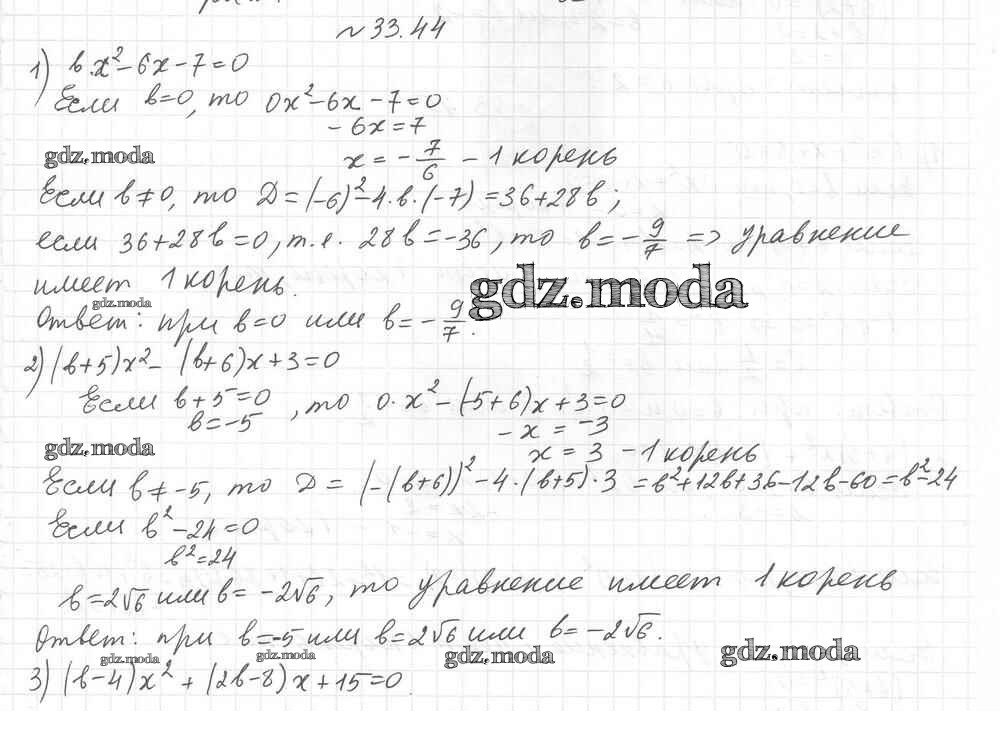 №33.44
1) b·x²-6x-7=0
Если b=0, то 0x²-6x-7=0
-6x=7
gdz.moda
x=-7/6 - 1 корень
Если b≠0, то D=(-6)²-4·b·(-7)=36+28b;
если 36+28b=0, т.е. 28b=-36, то b=-9/7 => уравнение
имеет 1 корень.
gdz.moda
gdz.moda
Ответ: при b=0 или b=-9/7.
2) (b+5)x²-(b+6)x+3=0
Если b+5=0, то 0·x²-(-5+6)x+3=0
b=-5
-x=-3
gdz.moda
x=3 - 1 корень
Если b≠-5, то D=(-(b+6))²-4·(b+5)·3=b²+12b+36-12b-60=b²-24
Если b²-24=0
b²=24
b=2√6 или b=-2√6, то уравнение имеет 1 корень
Ответ: при b=-5 или b=2√6 или b=-2√6.
gdz.moda gdz.moda gdz.moda gdz.moda
3) (b-4)x²+(2b-8)x+15=0